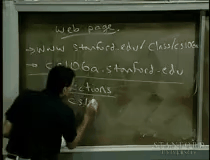 web page.
→ www.stanford.edu/class/cs106a
→ cs106a.stanford.edu
ctions
cs1
STANFORD
UNIVERSITY